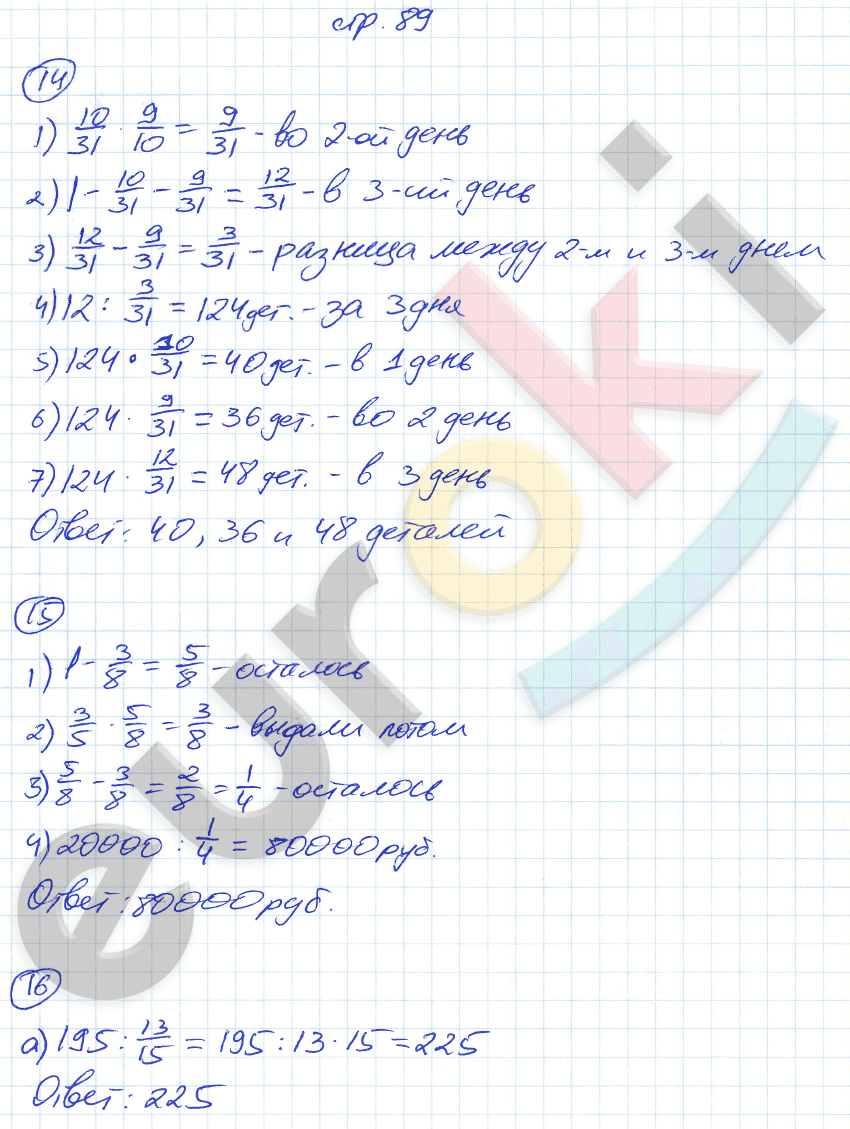 стр. 89
14
1) 10/31 · 9/10 = 9/31 - во 2-ой день
2) 1 - 10/31 - 9/31 = 12/31 - в 3-ий день
3) 12/31 - 9/31 = 3/31 - разница между 2-м и 3-м днем
4) 12 : 3/31 = 124 дет. - за 3 дня
5) 124 · 10/31 = 40 дет. - в 1 день
6) 124 · 9/31 = 36 дет. - во 2 день
7) 124 · 12/31 = 48 дет. - в 3 день
Ответ: 40, 36 и 48 деталей
15
1) 1 - 3/8 = 5/8 - осталось
2) 3/5 · 5/8 = 3/8 - выдали потом
3) 5/8 - 3/8 = 2/8 = 1/4 - осталось
4) 20000 : 1/4 = 80000 руб.
Ответ: 80000 руб.
16
а) 195 : 13/15 = 195 : 13 · 15 = 225
Ответ: 225
euroki